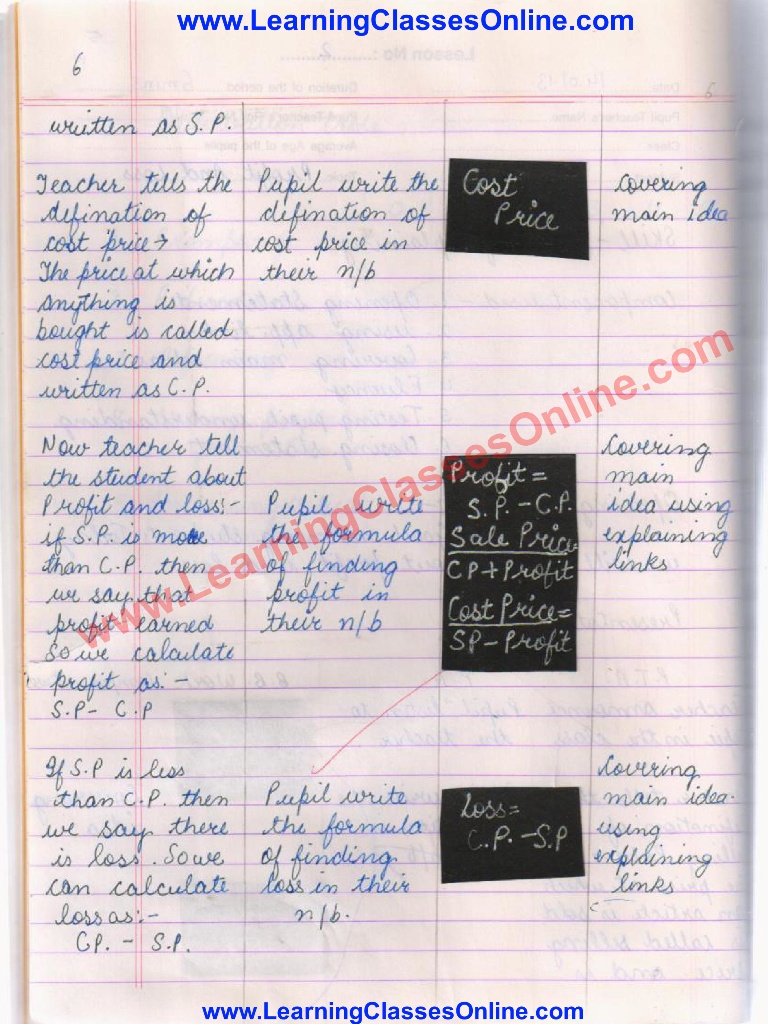 www.LearningClassesOnline.com
6
6
written as S.P.
Teacher tells the
defination of
cost price→
The price at which
anything is
bought is called
cost price and
written as C.P.
Pupil write the
defination of
cost price in
their n/b
Cost
Price
Covering
main idea
Now teacher tell
the student about
Profit and loss:-
if S.P is more
than C.P. then
we say that
profit earned
So we calculate
profit as:-
S.P- C.P
Pupil write
the formula
of finding
profit in
their n/b
Profit=
S.P.-C.P.
Sale Price
CP+Profit
Cost Price=
SP-Profit
Covering
main
idea using
explaining
links
If S.P is less
than C.P. then
we say there
is loss. So we
can calculate
loss as:-
C.P. - S.P.
Pupil write
the formula
of finding
loss in their
n/b.
Loss=
C.P.-S.P
Covering
main idea.
using
explaining
links
www.LearningClassesOnline.com
www.LearningClassesOnline.com